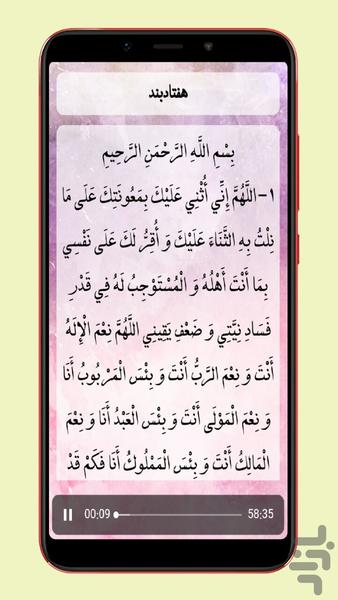 هفتادبند
بِسْمِ اللَّهِ الرَّحْمَنِ الرَّحِيمِ
۱-اللَّهُمَّ إِنِّي أُثْنِي عَلَيْكَ بِمَعُونَتِكَ عَلَى مَا
نِلْتُ بِهِ الثَّنَاءَ عَلَيْكَ وَ أُقِرُّ لَكَ عَلَى نَفْسِي
بِمَا أَنْتَ أَهْلُهُ وَ الْمُسْتَوْجِبُ لَهُ فِي قَدْرِ
فَسَادِ نِيَّتِي وَ ضَعْفِ يَقِينِي اللَّهُمَّ نِعْمَ الْإِلَهُ
أَنْتَ وَ نِعْمَ الرَّبُّ أَنْتَ وَ بِئْسَ الْمَرْبُوبُ أَنَا
وَ نِعْمَ الْمَوْلَى أَنْتَ وَ بِئْسَ الْعَبْدُ أَنَا وَ نِعْمَ
الْمَالِكُ أَنْتَ وَ بِئْسَ الْمَمْلُوكُ أَنَا فَكَمْ قَدْ
00:09 58:35
بازار